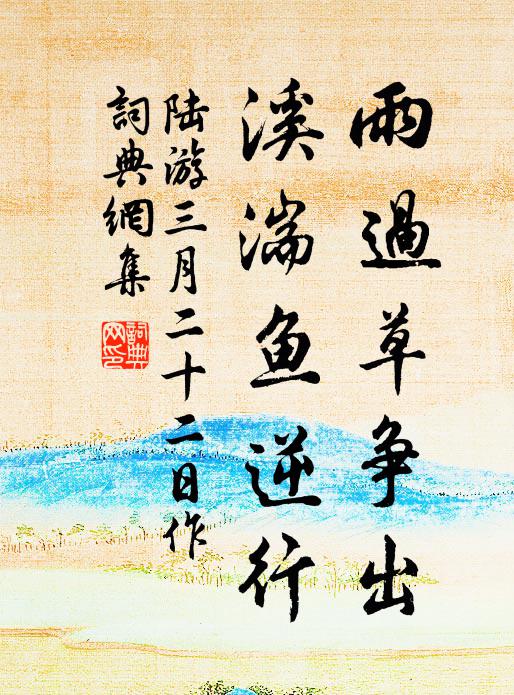 雨過草爭出
溪湍魚逆行
陸游三月二十二日作
詞典網集
詞典
网印